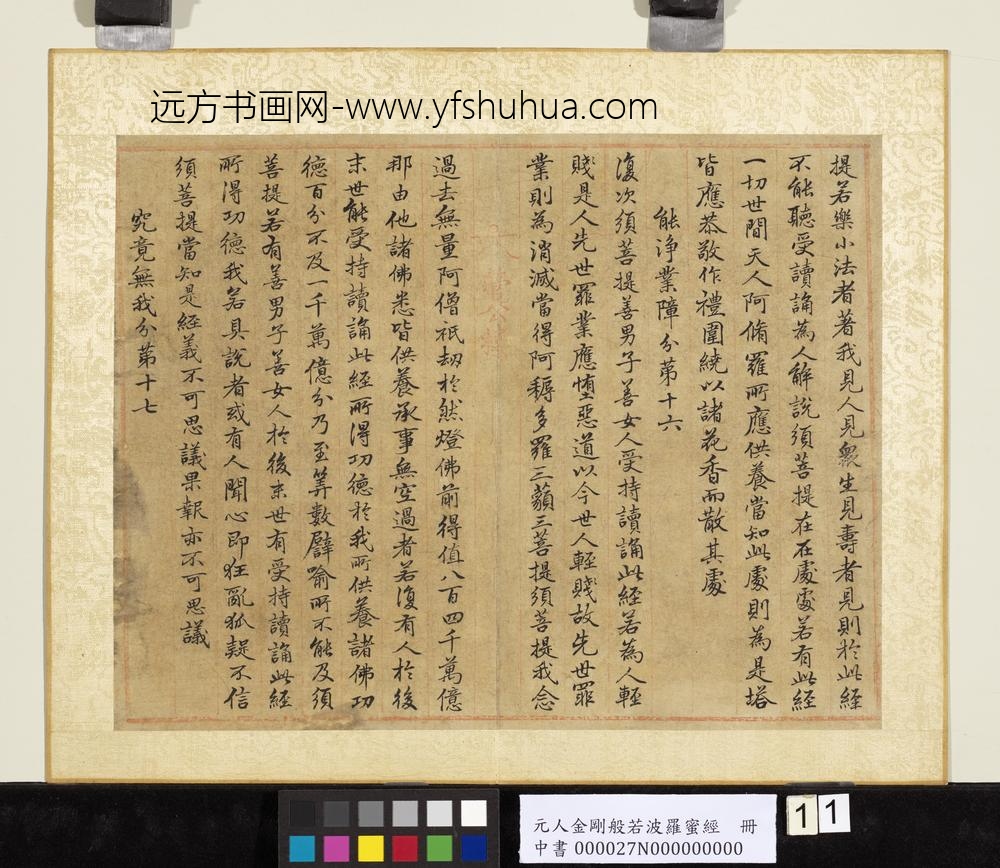 远方书画网-www.yfshuhua.com
提若樂小法者著我見人見衆生見壽者見則於此經
不能聽受讀誦為人解說須菩提在在處處若有此經
一切世間天人阿脩羅所應供養當知此處則為是塔
皆應恭敬作禮圍繞以諸花香而散其處
能淨業障分第十六
復次須菩提善男子善女人受持讀誦此經若為人輕
賤是人先世罪業應堕惡道以今世人輕賤故先世罪
業則為消滅當得阿耨多羅三藐三菩提須菩提我念
過去無量阿僧祇劫於然燈佛前得值八百四千萬億
那由他諸佛悉皆供養承事無空過者若復有人於後
末世能受持讀誦此經所得功德於我所供養諸佛功
德百分不及一千萬億分乃至筭數譬喻所不能及須
菩提若有善男子善女人於後末世有受持讀誦此經
所得功德我若具說者或有人聞心即狂亂狐疑不信
須菩提當知是經義不可思議果報亦不可思議
究竟無我分第十七
元人金剛般若波羅蜜經 冊
中書000027N000000000
1 1